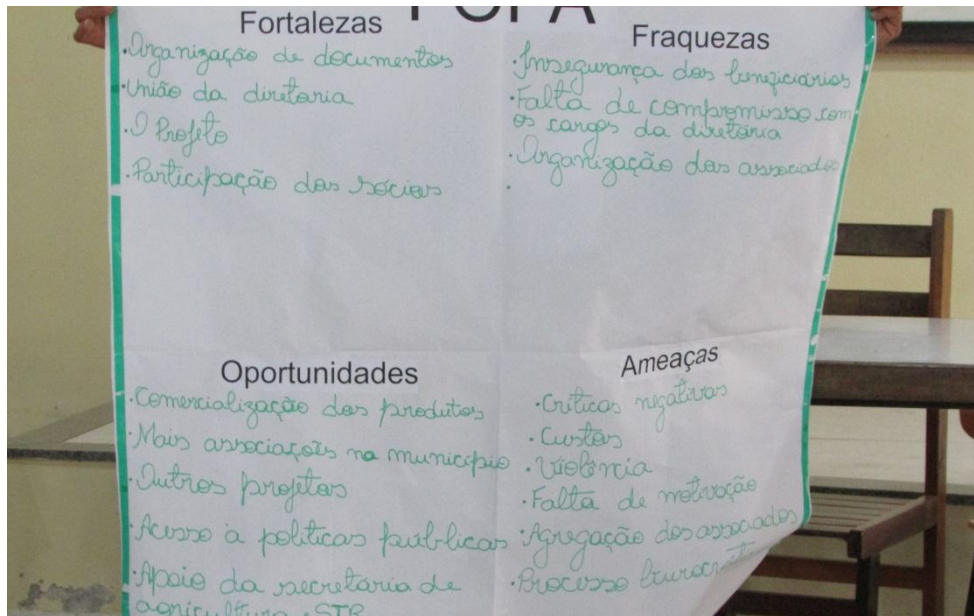 FOFA
Fortalezas
·Organização de documentos
·União da diretoria
·O Projeto
·Participação dos sócios
Fraquezas
·Insegurança dos beneficiários
·Falta de compromisso com
os cargos da diretória
·Organização dos associados
·
Oportunidades
·Comercialização dos produtos
·Mais associações no município
·Outros projetos
·Acesso à políticas públicas
·Apoio da secretaria de
agricultura, STR
Ameaças
·Críticas negativas
·Custos
·Violência
·Falta de motivação
·Agregação dos associados
·Processo